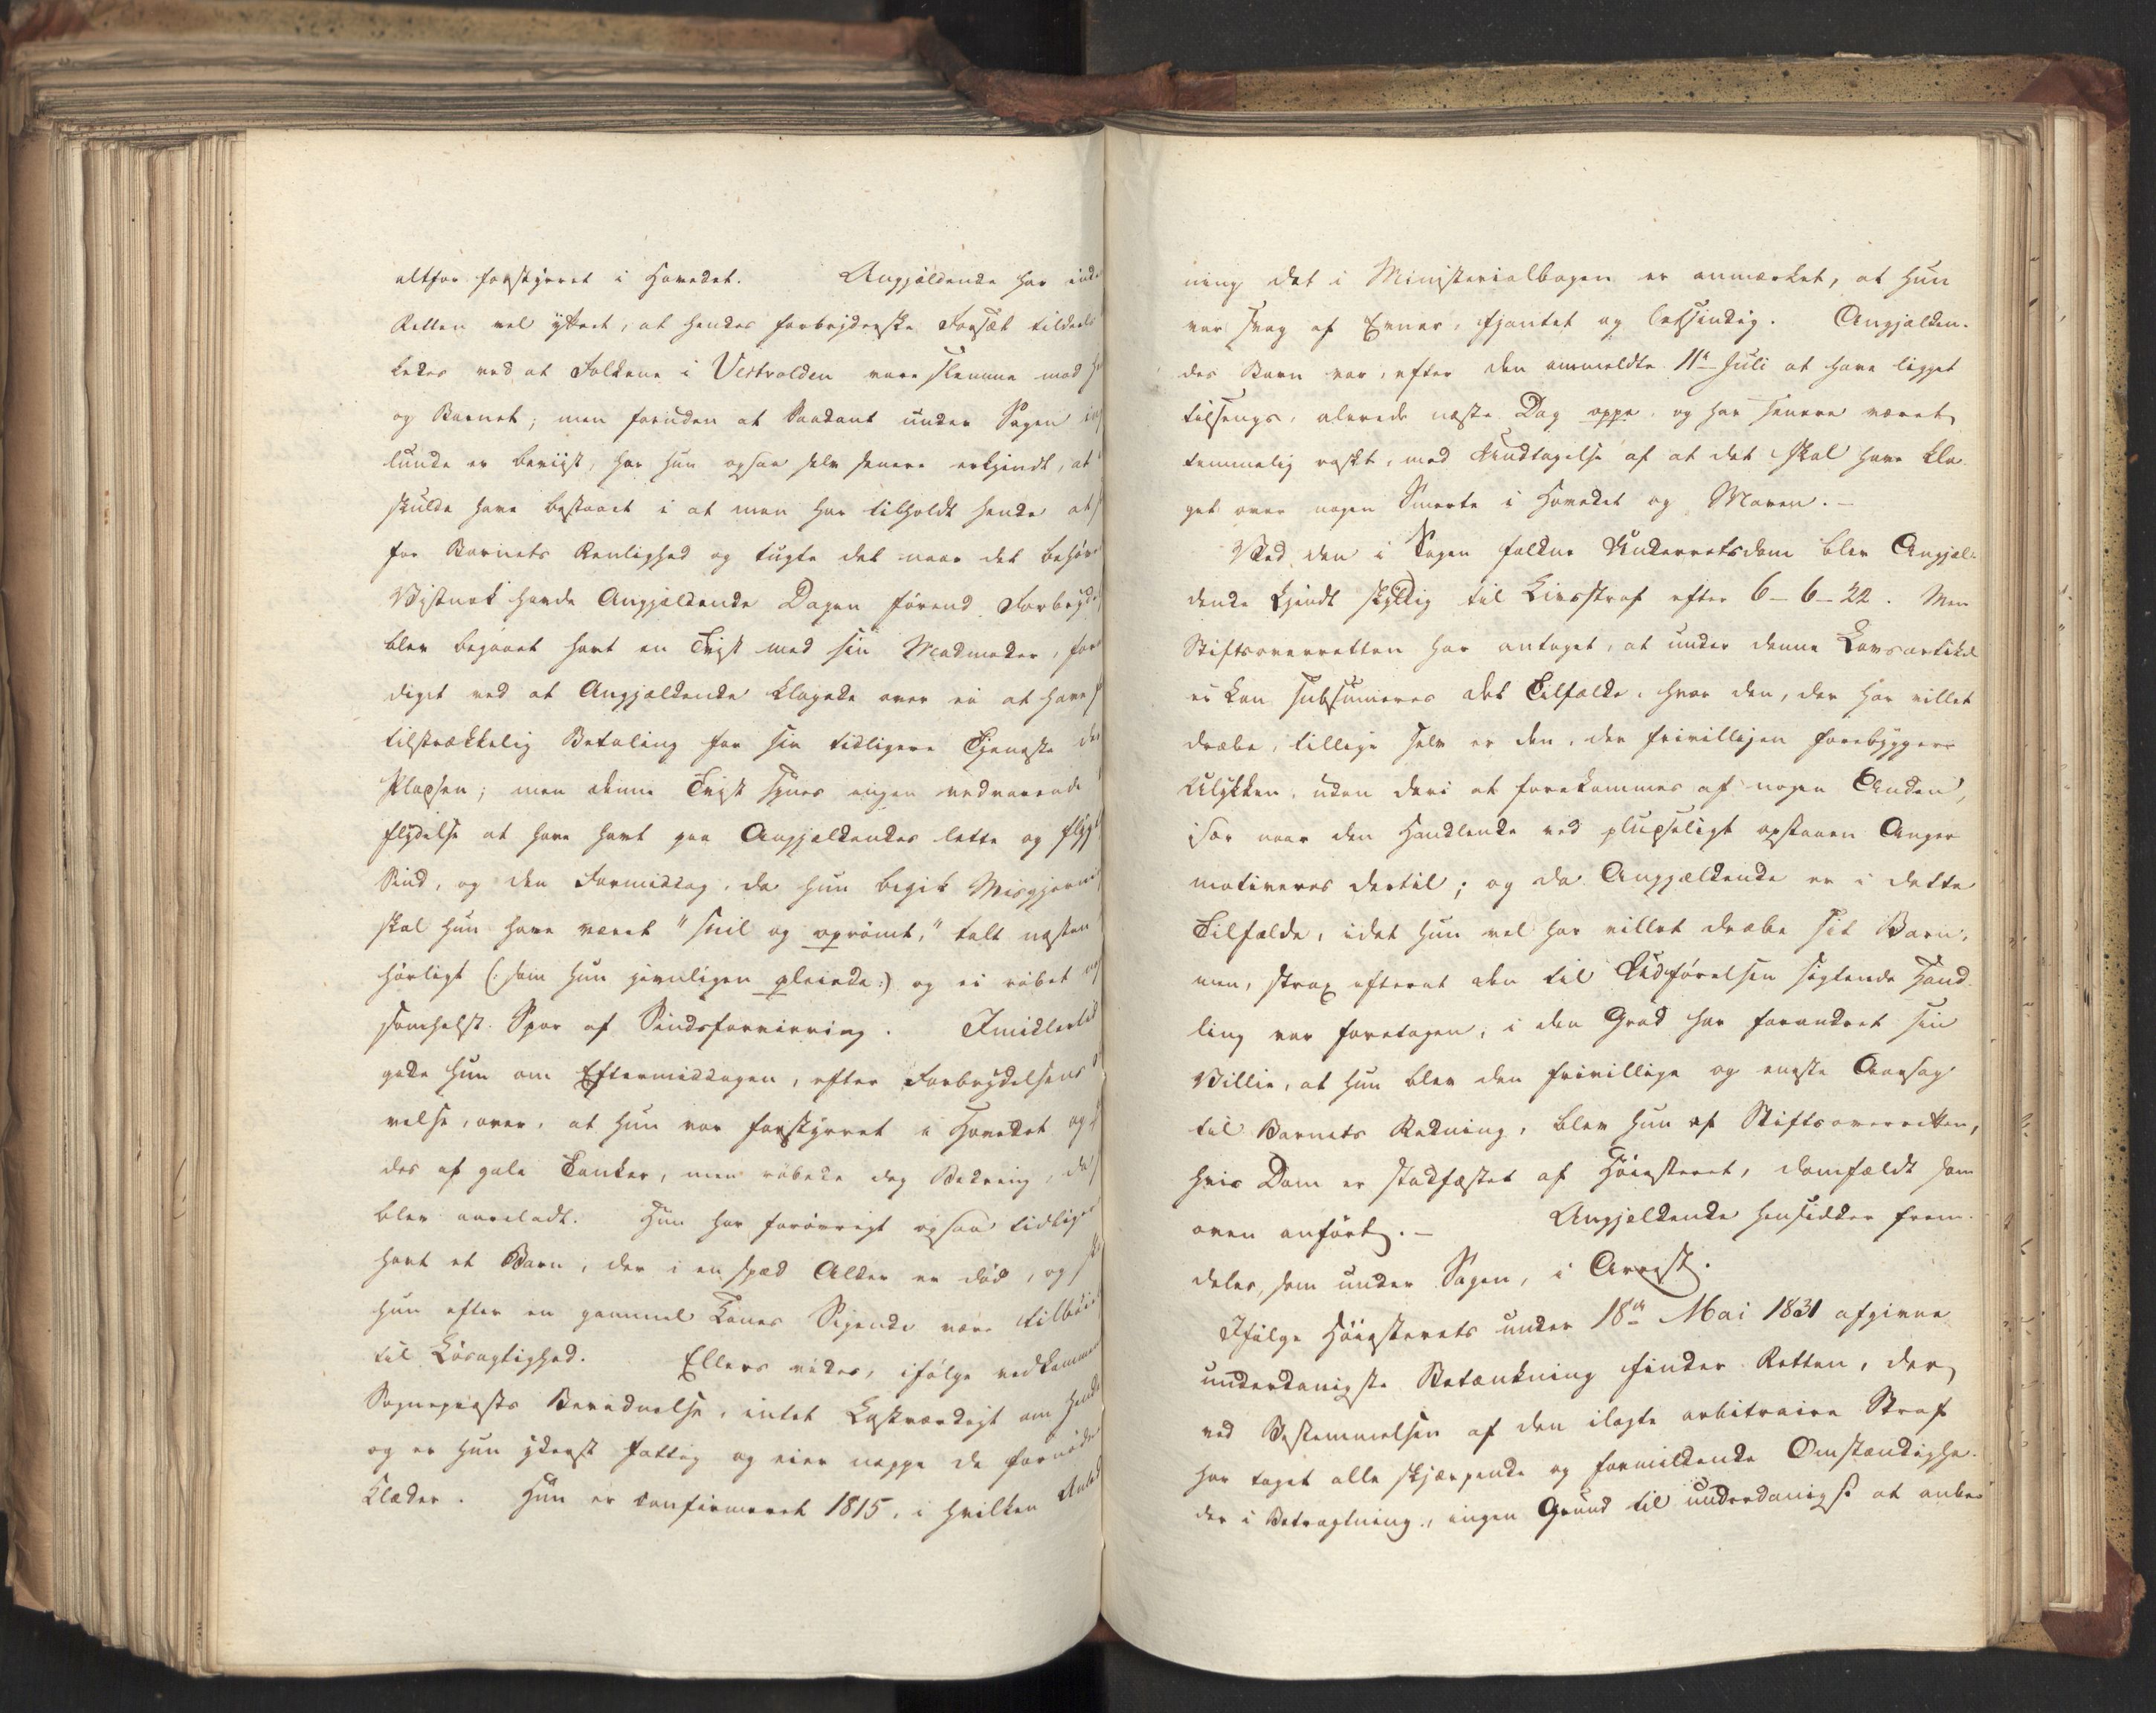 altfor forstyrret i Hovedet. Angjældende har inde
Retten vel yttret, at hendes forbryderske Forsæt tildeels
ledes ved at Folkene i Vestvolden vare slemme mod
og Barnet; men foruden at Saadant under Sagen
lunde er beviist, har hun ogsaa selv senere erkjendt, at
skulde have bestaaet i at man har tilholdt hende at
for Barnets Renlighed og tugte det naar det behøve
Vistnok havde Angjældende Dagen førend Forbryde
blev begaaet havt en Trist med sin Madmoder, for
diget ved at Angjældende klagede over ei at have
tilstrækkelig Betaling for sin tidligere Tjeneste der
Pladsen; men denne Trist synes ingen vedvarende
flydelse at have havt paa Angjældendes lette og flygt
Sind, og den Formiddag, da hun begik Misgjerni
skal hun have været "snil og oprømt," talt næsten
hørligt (: som hun jevnligen pleiede :) og ei røbet
somhelst Spor af Sindsforvirring. Imidlertid
gede hun om Eftermiddagen, efter Forbrydelsens
velse, over, at hun var forstyrret i Hovedet og
des af gale Tanker, men røbede dog Bedring, da
blev aareladt. Hun har forøvrigt ogsaa tidlige
havt et Barn, der i en spæd Alder er død, og
hun efter en gammel Kones Sigende være tilbøie
til Løsagtighed. Ellers vides, ifølge vedkommen
Sognepræsts Beredvelse, intet Lastværdigt om hende
og er hun yderst fattig og eier neppe de fornødne
Klæder. Hun er confirmeret 1815, i hvilken Anled
ning det i Ministerialbogen er anmærket, at hun
var svag af Evner, fjantet og letsindig. Angjælden-
des Barn var, efter den anmeldte 11te Juli at have ligget
tilsengs, alerede næste Dag oppe, og har senere været
temmelig raskt, med Undtagelse af at det skal have kla-
get over nogen Smerte i Hovedet og Maven. –
Ved den i Sagen faldne Underretsdom blev Angjæl-
dende kjendt skyldig til Livsstraf efter 6-6-22. Men
Stiftsoverretten har antaget, at under denne Lovsartikel
ei kan subsumeres det Tilfælde, hvor den, der har villet
dræbe, tillige selv er den, der frivilligen forebygger
Ulykken, uden deri at forekommes af nogen Anden,
især naar den Handlende ved pludseligt opstaaen Anger
motiveres dertil; og da Angjældende er i dette
Tilfælde, idet hun vel har villet dræbe sit Barn,
men, strax efterat den til Udførelsen sigtende Hand-
ling var foretagen, i den Grad har forandret sin
Villie, at hun blev den frivillige og eneste Aarsag
til Barnets Redning, blev hun af Stiftsoverretten,
hvis Dom er stadfæstet af Høiesteret, domfældt som
oven anført. – Angjældende hensidder frem-
deles, som under Sagen, i Arrest.
Ifølge Høiesterets under 18de Mai 1831 afgivne
underdanigste Betænkning finder Retten, der
ved Bestemmelsen af den ilagte arbitraire Straf
har taget alle skjærpende og formildende Omstændighe-
der i Betragtning, ingen Grund til underdanigst at anbe